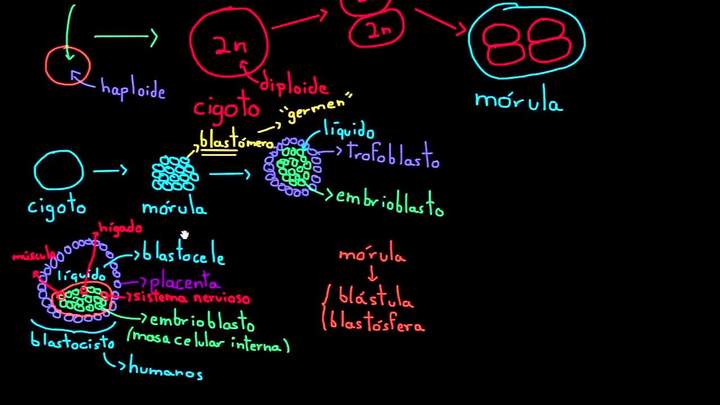 2n
2n
haploide
diploide
cigoto
mórula
"germen"
blastómero
líquido
trofoblasto
embrioblasto
cigoto
mórula
hígado
músculo
líquido
blastocele
placenta
sistema nervioso
embrioblasto
(masa celular interna)
blastocisto
humanos
mórula
blástula
blastósfera